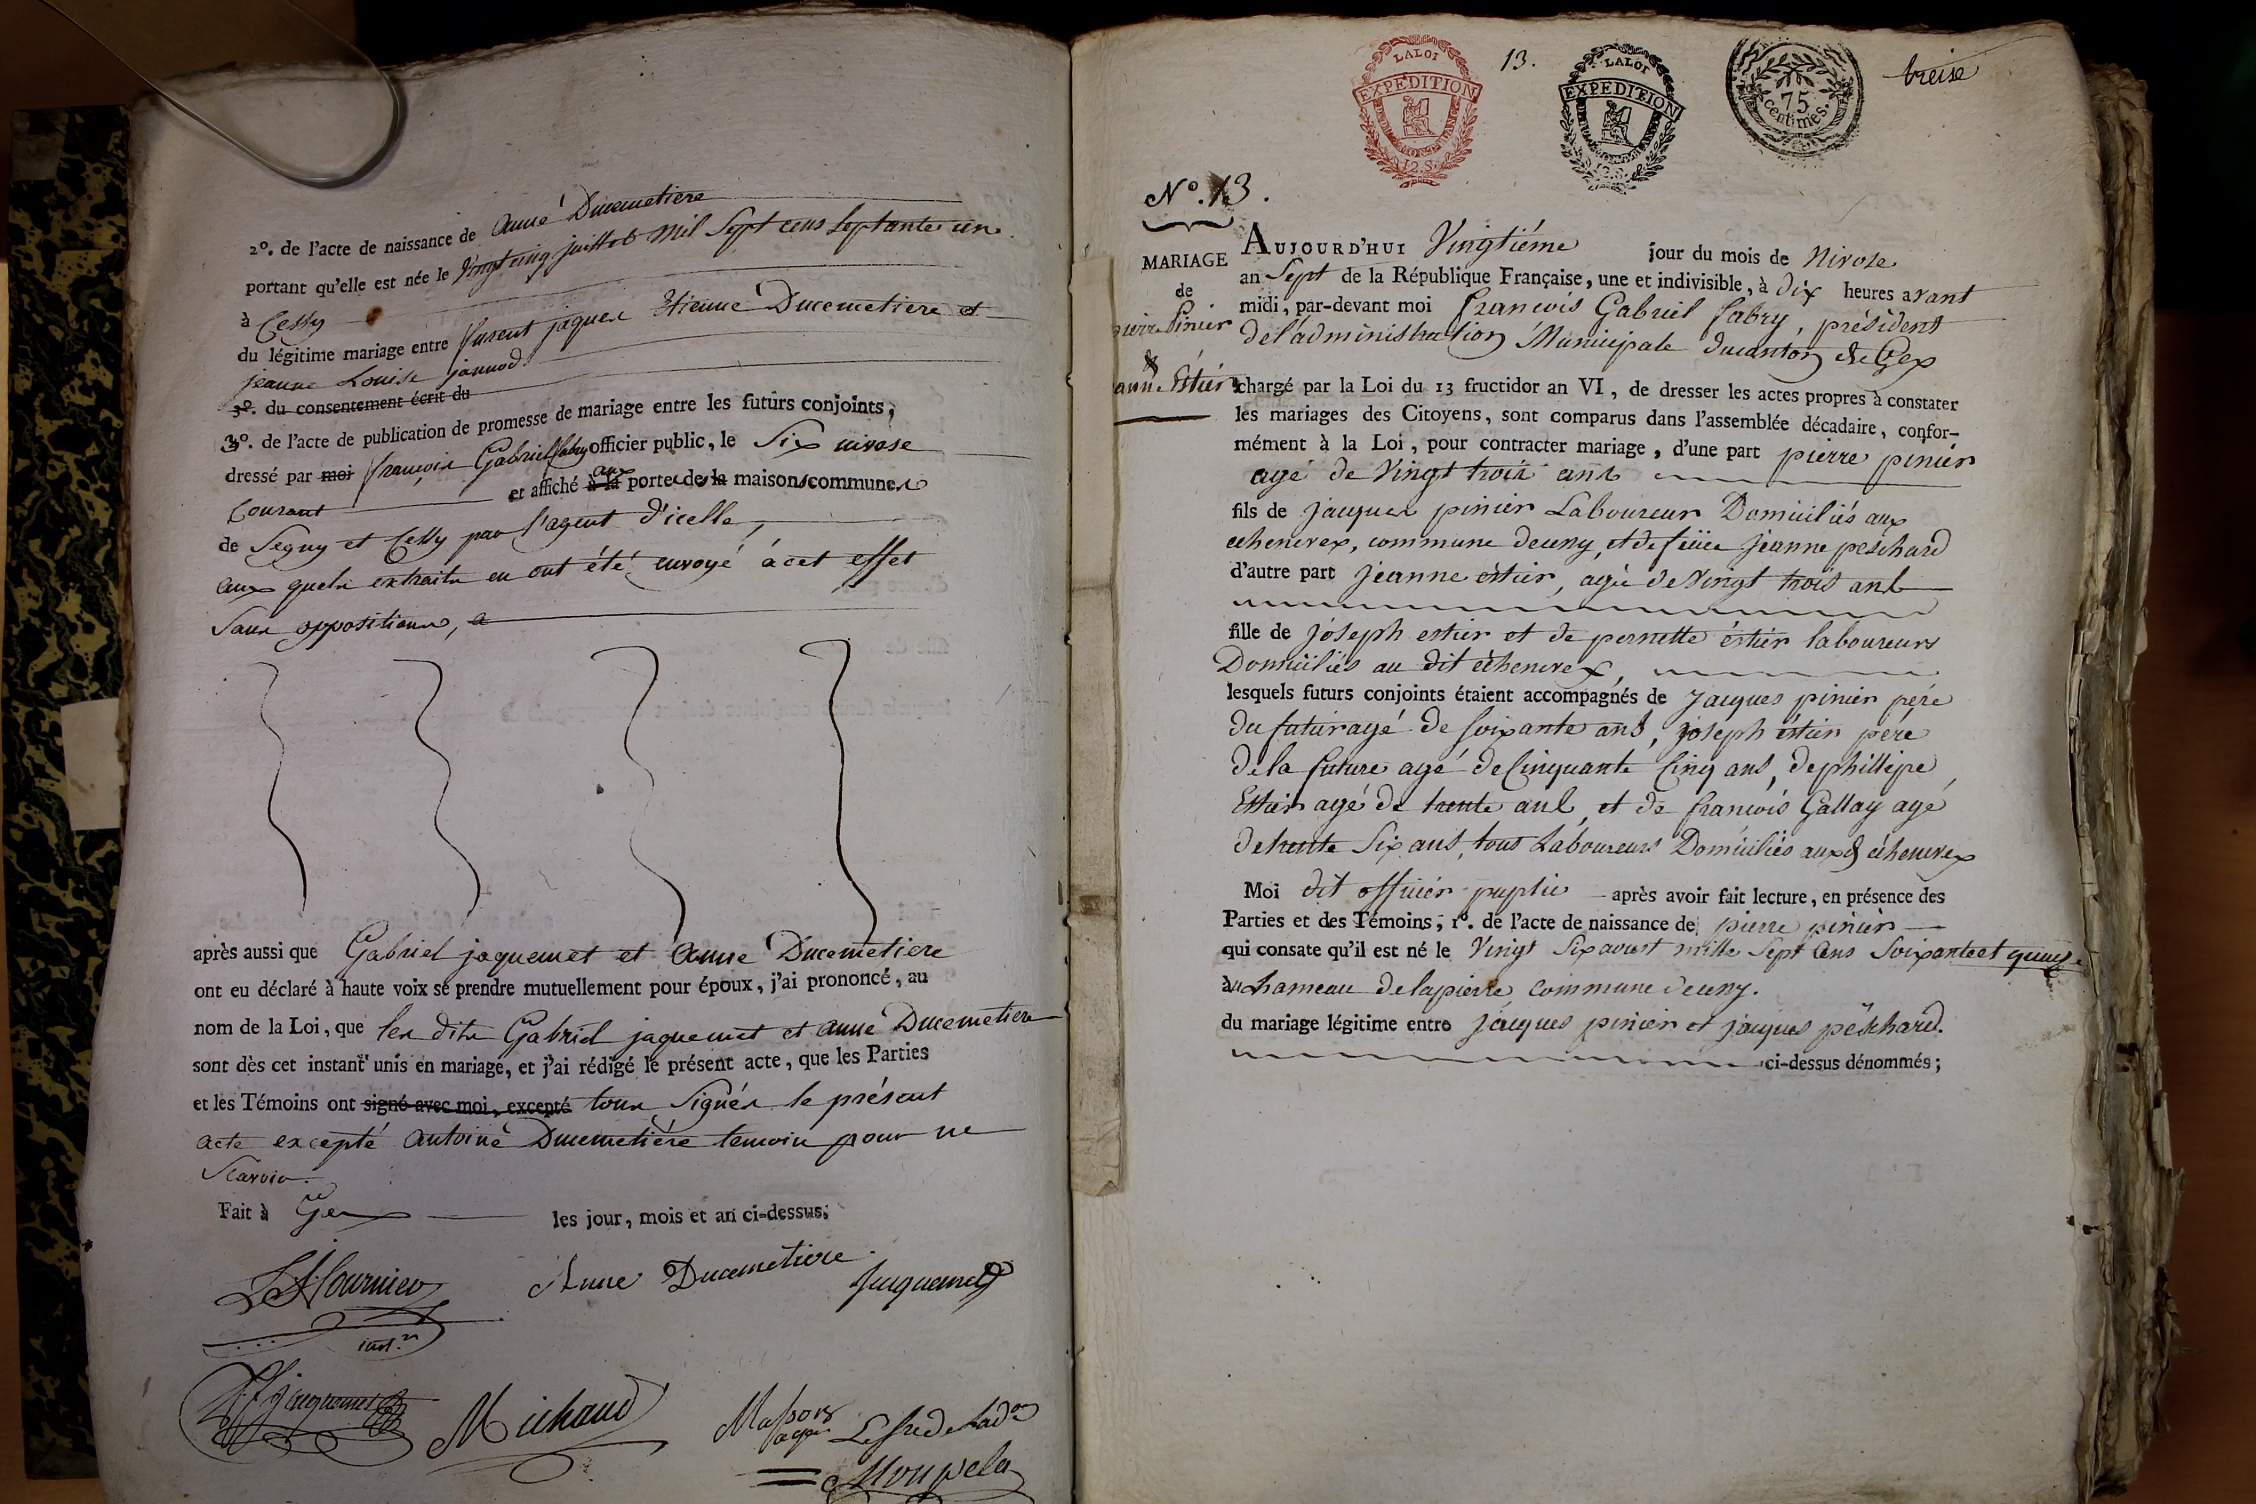 2°. de l'acte de naissance de anne Ducemetiere
portant qu'elle est née le Vingt cinq juillet mil Sept cens Septante un
à Cessy
du légitime mariage entre furent jaques Etienne Ducemetiere et
jeanne Louise jannod
3°. du consentement écrit du
3°. de l'acte de publication de promesse de mariage entre les futurs conjoints,
dressé par moi françois Gabriel fabry officier public, le Six nivose
Courant et affiché à la aux portes des la maisons communes
de Segny et Cessy par l'agent d'icelle,
aux quels extraits en ont été envoyé à cet effet
Sans oppositions,
après aussi que Gabriel jaquemet et Anne Ducemetiere
ont eu déclaré à haute voix se prendre mutuellement pour époux, j'ai prononcé, au
nom de la Loi, que les dits Gabriel jaquemet et anne Ducemetiere
sont dès cet instant unis en mariage, et j'ai rédigé le présent acte, que les Parties
et les Témoins ont signé avec moi, excepté tous Signés le présent
acte excepté antoine Ducemetière temoin pour ne
Scavoir.
Fait à Gex les jour, mois et an ci-dessus.
Fournier Anne Ducemetiere. Jaquemet
Jaquemet Michaud Masson
13. treise
LA LOI
EXPEDITION
12. S.
LA LOI
EXPEDITION
75
centimes.
N°. 13.
MARIAGE
de
pierre Pinier
&
anne Estier
AUJOURD'HUI Vingtiéme jour du mois de Nivose
an Sept de la République Française, une et indivisible, à dix heures avant
midi, par-devant moi francois Gabriel fabry, président
de l'administration Municipale du canton de Gex
chargé par la Loi du 13 fructidor an VI, de dresser les actes propres à constater
les mariages des Citoyens, sont comparus dans l'assemblée décadaire, confor-
mément à la Loi, pour contracter mariage, d'une part pierre pinier
agé de Vingt trois ans
fils de jacques pinier Laboureur Domiciliés aux
echenevex, commune de cny, et de feüe jeanne peschard
d'autre part jeanne estier, agé de Vingt trois ans
fille de joseph estier et de pernette éstier laboureurs
Domiciliés au dit echenevex,
lesquels futurs conjoints étaient accompagnés de jacques pinier pére
du futur agé de soixante ans, joseph éstier pére
de la future agé de Cinquante Cinq ans, de phillipe
Estier agé de trente ans, et de francois Gallay agé
de trente Six ans, tous Laboureurs Domiciliés aux echenevex
Moi dit officier puplic après avoir fait lecture, en présence des
Parties et des Témoins, 1°. de l'acte de naissance de pierre pinier
qui consate qu'il est né le Vingt Six aoust mille Sept Cens Soixante et quinze
au hameau de lapierre commune de cny.
du mariage légitime entre jacques pinier et jacques peschard.
ci-dessus dénommés;